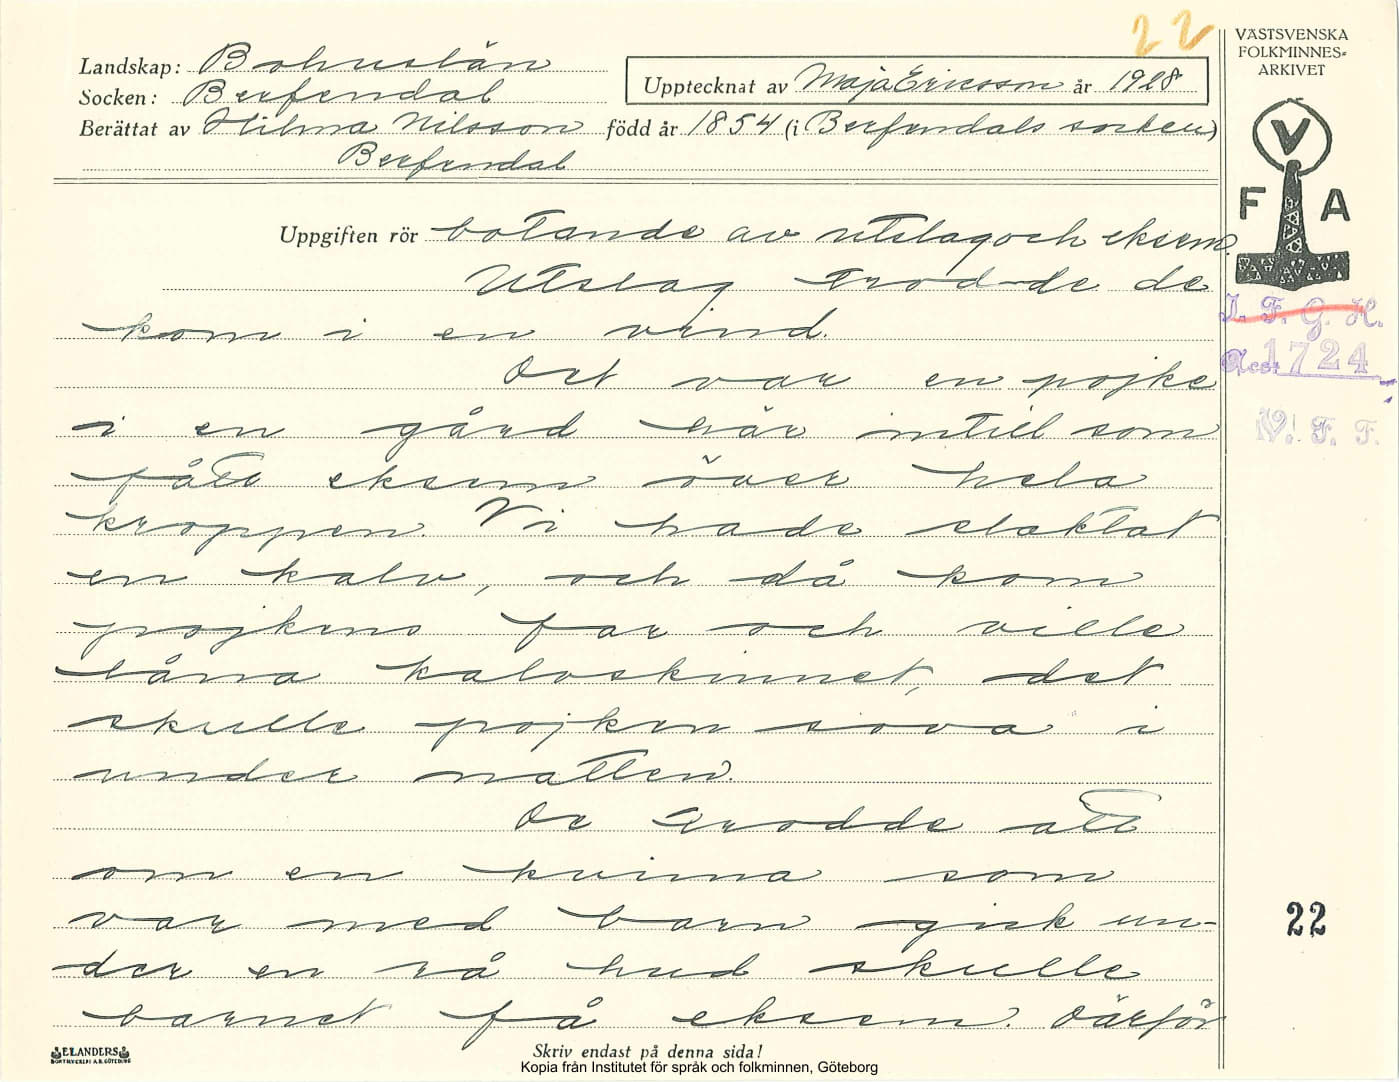 22
VÄSTSVENSKA
FOLKMINNES=
ARKIVET
Landskap: Bohuslän
Upptecknat av Maja Ericsson år 1928
Socken: Berfendal
Berättat av Hilma Nilsson född år 1854 (i Berfendals socken)
Berfendal
V
F A
Uppgiften rör botande av utslag och eksem.
Utslag trod-de de
kom i en vind.
Det var en pojke
i en gård här intill som
fått eksem över hela
kroppen. Vi hade slaktat
en kalv, och då kom
pojkens far och ville
låna kalvskinnet, det
skulle pojken sova i
under natten.
De trodde att
om en kvinna som
var med barn gick un-
der en rå hud skulle
barnet få eksem. Därför
I. F. G. H.
Acc. 1724
V. F. F.
22
ELANDERS
BOKTRYCKERI A.B. GÖTEBORG
Skriv endast på denna sida!
Kopia från Institutet för språk och folkminnen, Göteborg